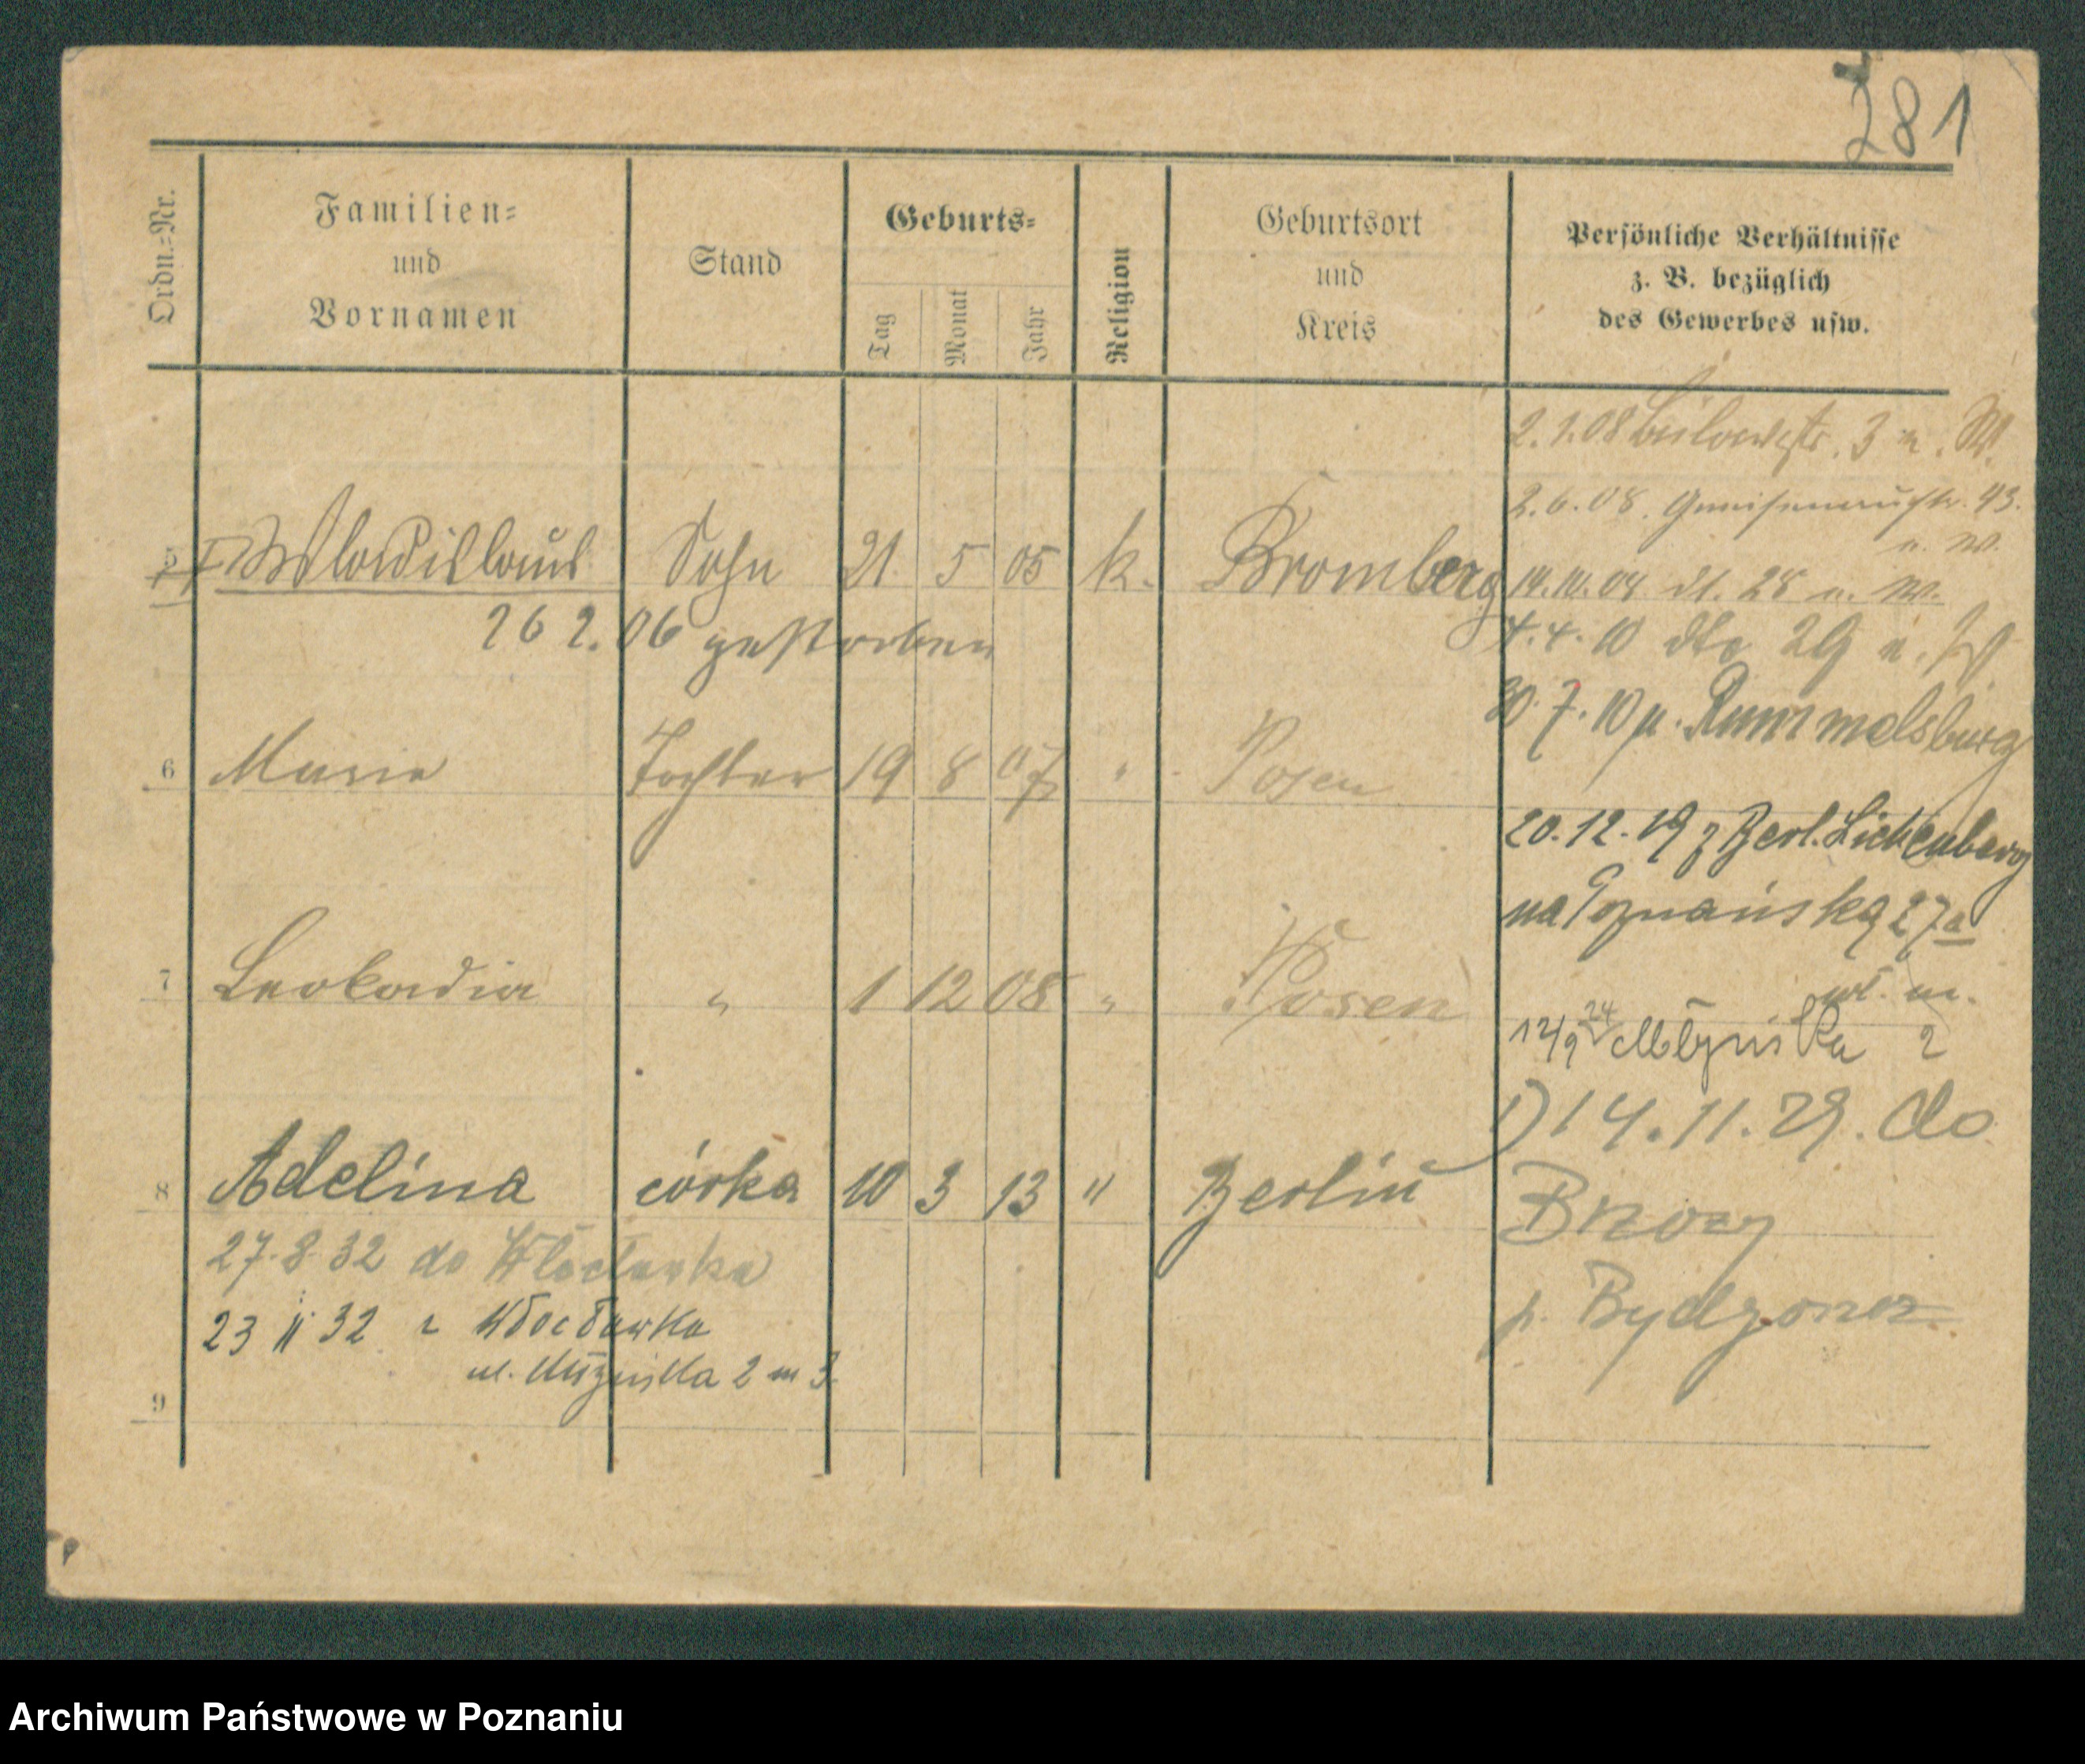 281
Ordn.-Nr.
Familien-
und
Vornamen
Stand
Geburts-
Tag
Monat
Jahr
Religion
Geburtsort
und
Kreis
Persönliche Verhältnisse
z. B. bezüglich
des Gewerbes usw.
2.1.08 Bülowstr. 3 n. W.
2.6.08. Gneisenaustr. 43.
n. W.
5 Wladislaus Sohn 21. 5 05 k. Bromberg
14.10.08 dt. 28 n. W.
26 2. 06 gestorben
4.4.10 dto 29 n. W
30.7.10 n. Rummelsburg
6 Marie Tochter 19 8 07 " Posen
20.12.19 z Berl. Lichtenberg
na Poznańską 27a
wł. m.
7 Leokadia " 1 12 08 " Posen
12/9 24 Młyńska 2
1) 14.11.29. do
8 Adelina córka 10 3 13 " Berlin
Bnozy
27.8.32 do Włocławka
23 11 32 z Włocławka
p. Bydgoszcz
ul. Młyńska 2 m 3.
9
Archiwum Państwowe w Poznaniu